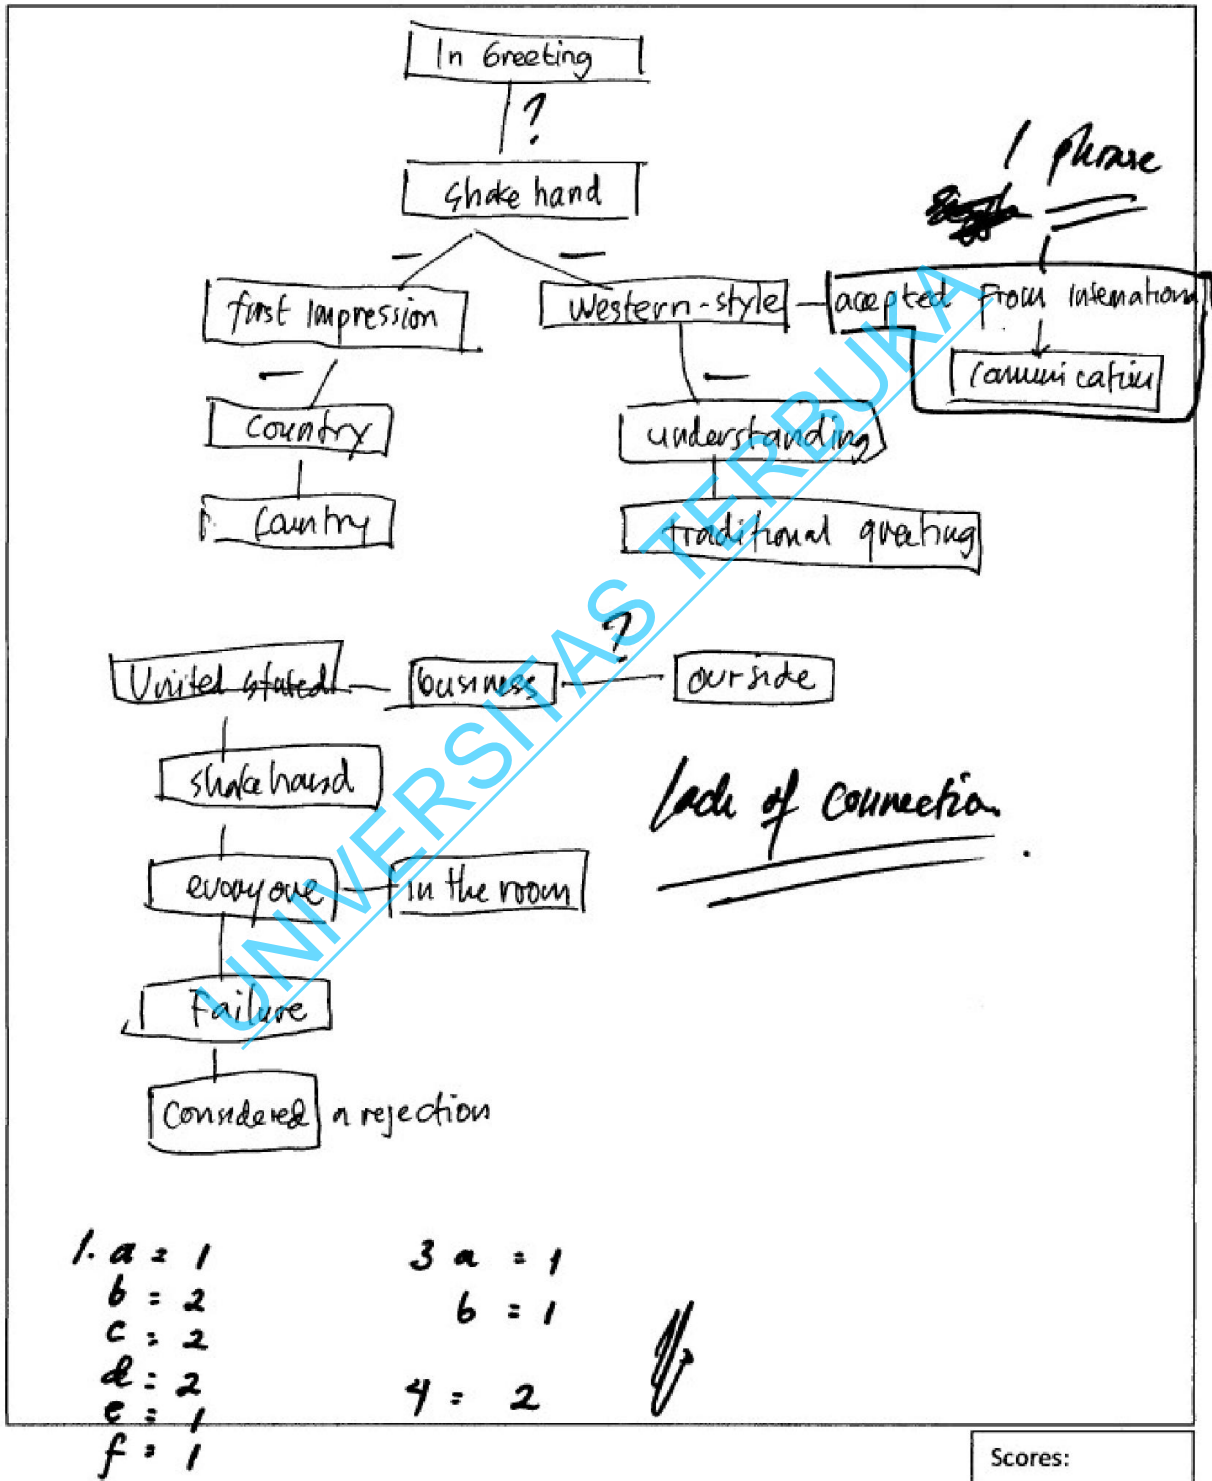 In Greeting
?
1 phrase
Shake hand
first Impression
Western-style
accepted From Internationa
Communication
Country
understanding
Country
traditional greeting
?
United stated
business
ourside
shake hand
lack of connection.
everyone
in the room
Failure
Considered a rejection
1. a = 1
b = 2
c = 2
d = 2
e = 1
f = 1
3 a = 1
b = 1
4 = 2
Scores:
UNIVERSITAS TERBUKA